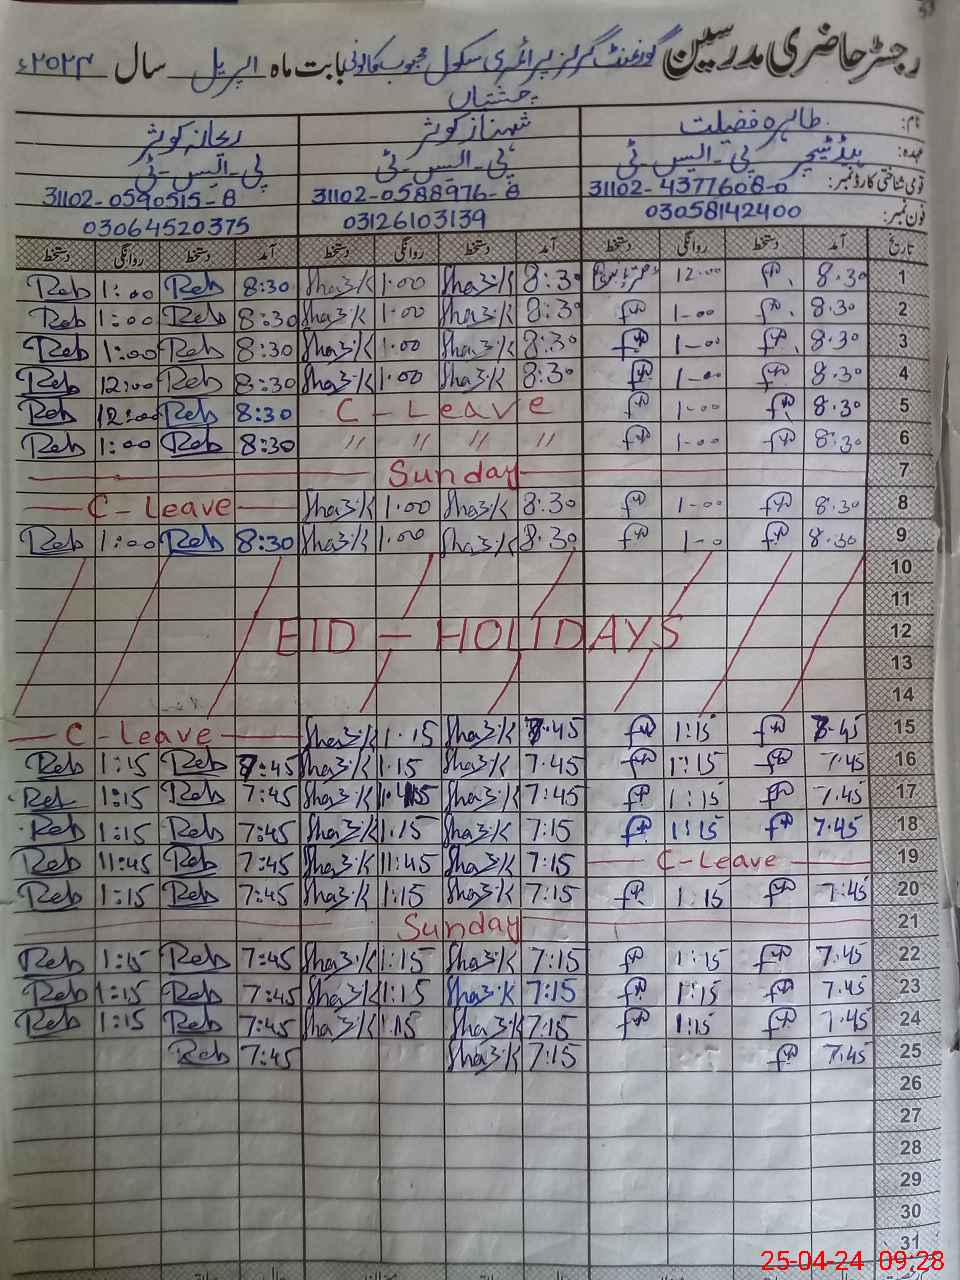 رجسٹر حاضری مدرسین گورنمنٹ گرلز پرائمری سکول محبوب کالونی بابت ماہ اپریل سال ۲۰۲۴ء
چشتیاں
نام: طاہرہ فضیلت شہناز کوثر ریحانہ کوثر
عہدہ: ہیڈ ٹیچر پی-ایس-ٹی پی-ایس-ٹی پی-ایس-ٹی
قومی شناختی کارڈ نمبر: 31102-4377608-0 31102-0588976-8 31102-0590515-8
فون نمبر: 03058142400 03126103139 03064520375
تاریخ آمد دستخط روانگی دستخط آمد دستخط روانگی دستخط آمد دستخط روانگی دستخط
1 8.30 12.00 8:30 Sha3:K 1.00 Sha3:K 8:30 Reb 1:00 Reb
2 8.30 1-00 8:30 Sha3:K 1.00 Sha3:K 8:30 Reb 1:00 Reb
3 8.30 1-00 8:30 Sha3:K 1.00 Sha3:K 8:30 Reb 1:00 Reb
4 8.30 1-00 8:30 Sha3:K 1.00 Sha3:K 8:30 Reb 12:00 Reb
5 8.30 1-00 C - Leave 8:30 Reb 12:00 Reb
6 8.30 1-00 〃 〃 〃 〃 8:30 Reb 1:00 Reb
7 Sunday
8 8.30 1-00 8:30 Sha3:K 1.00 Sha3:K C - Leave
9 8.30 1-0 8:30 Sha3:K 1.00 Sha3:K 8:30 Reb 1:00 Reb
10
11
12 EID - HOLIDAYS
13
14
15 7.45 1:15 7.45 Sha3:K 1.15 Sha3:K C - Leave
16 7.45 1:15 7.45 Sha3:K 1.15 Sha3:K 7:45 Reb 1:15 Reb
17 7.45 1:15 7:45 Sha3:K Sha3:K 7:45 Reb 1:15 Reb
18 7.45 1:15 7:15 Sha3:K 1.15 Sha3:K 7:45 Reb 1:15 Reb
19 C-Leave 7:15 Sha3:K 11:45 Sha3:K 7:45 Reb 11:45 Reb
20 7:45 1:15 7:15 Sha3:K 1:15 Sha3:K 7:45 Reb 1:15 Reb
21 Sunday
22 7.45 1:15 7:15 Sha3:K 1:15 Sha3:K 7:45 Reb 1:15 Reb
23 7.45 1:15 7:15 Sha3:K 1:15 Sha3:K 7:45 Reb 1:15 Reb
24 7.45 1:15 7:15 Sha3:K 1.15 Sha3:K 7:45 Reb 1:15 Reb
25 7.45 7:15 Sha3:K 7:45 Reb
26
27
28
29
30
31
25-04-24 09:28